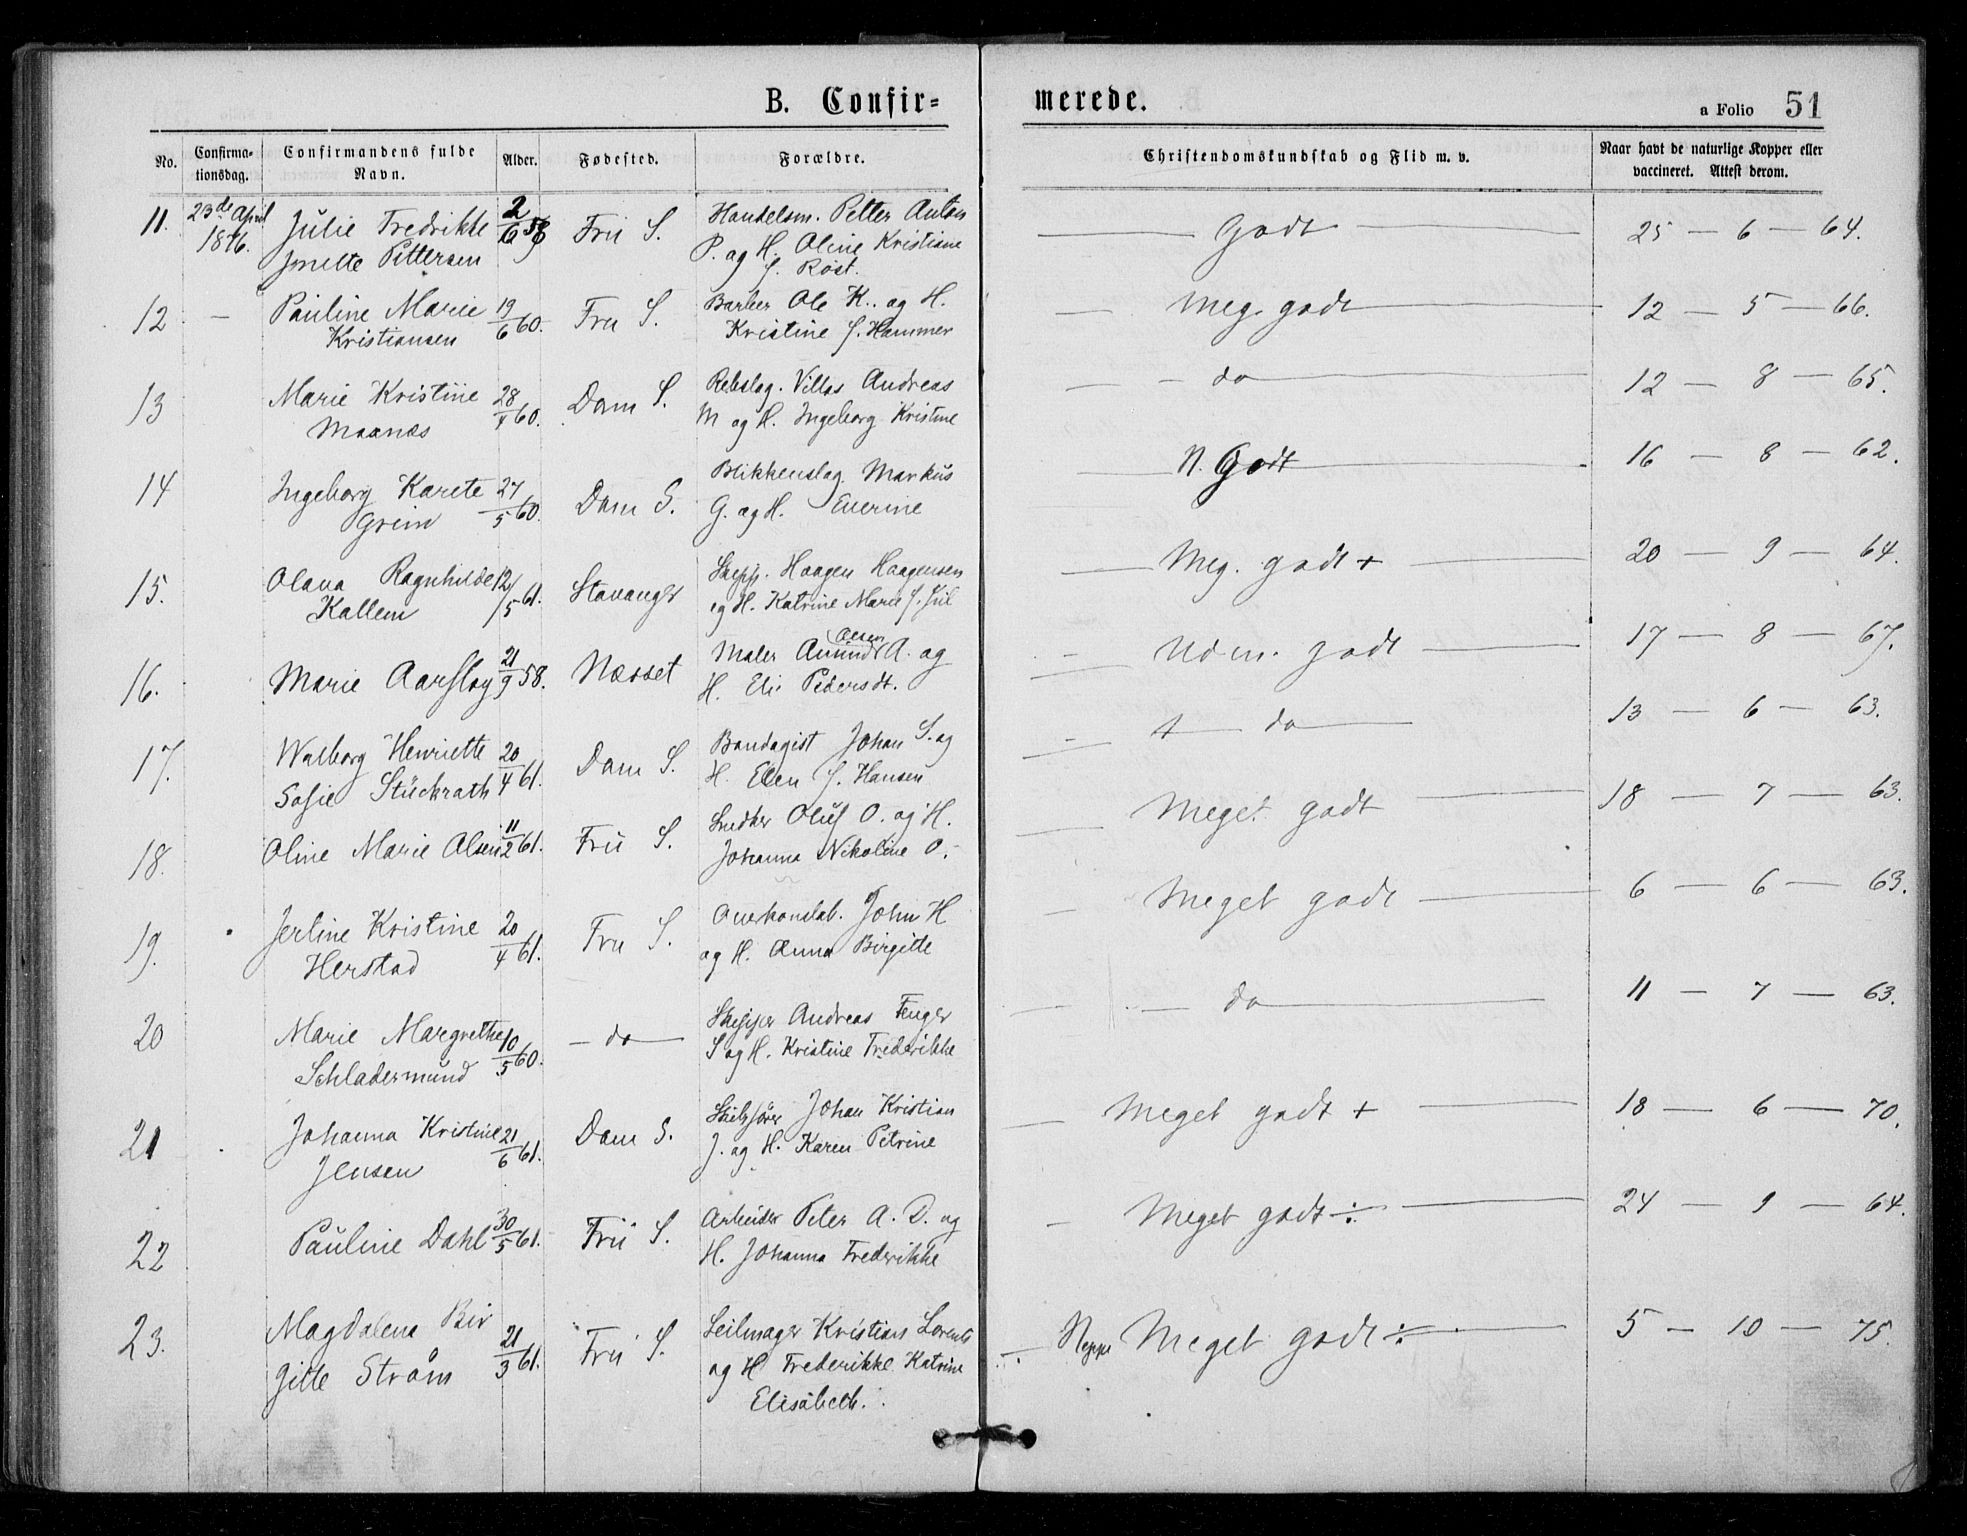 B. Confir=
merede.
a Folio 51
No. Confirma-tionsdag. Confirmandens fulde Navn. Alder. Fødested. Forældre. Christendomskundskab og Flid m. v. Naar havt de naturlige Kopper eller vaccineret. Attest derom.
11. 23de April Julie Fredrikke 2/6 Fru S. Handelsm. Petter Anton Godt 25 – 6 – 64.
1876. Jonette Pettersen P. og H. Oline Kristiane
f. Røst.
12 – Pauline Marie 19/6 60. Fru S. Barber Ole K. og H. Meg. godt 12 – 5 – 66.
Kristiansen Kristine f. Hammer
13 Marie Kristine 28 60. Dom S. Rebslag. Andreas do 12 – 8 – 65.
Maanæs M og H. Ingeborg Kristine
14 Ingeborg Karete 27/5 60. Dom S. Blikkenslag. Markus N. Godt 16 – 8 – 62.
Grim G. og H. Everine
15. Olava Ragnhilde 12/5 61. Stavanger Skipp. Haagen Haagensen Meg. godt + 20 – 9 – 64.
Kallem og H. Katrine Marie f. Jül
16. Marie Aarfløy 21/9 58. Næsset Maler Amund Olsen A. og Udm. godt 17 – 8 – 67.
H. Eli Pedersdt.
17. Walborg Henriette 20/4 61. Dom S. Bandagist Johan S. og do 13 – 6 – 63.
Sofie Stückrath H. Elen f. Hansen
18. Oline Marie Olsen 11/2 61. Fru S. Snedker Oluf O. og H. Meget godt 18 – 7 – 63.
Johanna Nikoline O.
19. Jerline Kristine 20/4 61. Fru S. Overkonstab. John H Meget godt 6 – 6 – 63.
Herstad og H. Anna Birgitte
20 Marie Margrethe 10/5 60. – do – Skipper Andreas Fenger do 11 – 7 – 63.
Schladermund S og H. Kristine Frederikke
21 Johanna Kristine 21/6 61. Dom S. Skibsfører Johan Kristian Meget godt + 18 – 6 – 70.
Jensen J. og H. Karen Petrine
22 Pauline Dahl 30/5 61. Fru S. Arbeider Peter A. D. og Meget godt ÷ 24 – 9 – 64.
H. Johanna Frederikke
23. Magdalena Bir 21/3 61. Fru S. Seilmager Kristian Lorents Neppe Meget godt ÷ 5 – 10 – 75.
gitte Strøm og H Frederikke Katrine
Elisabeth.